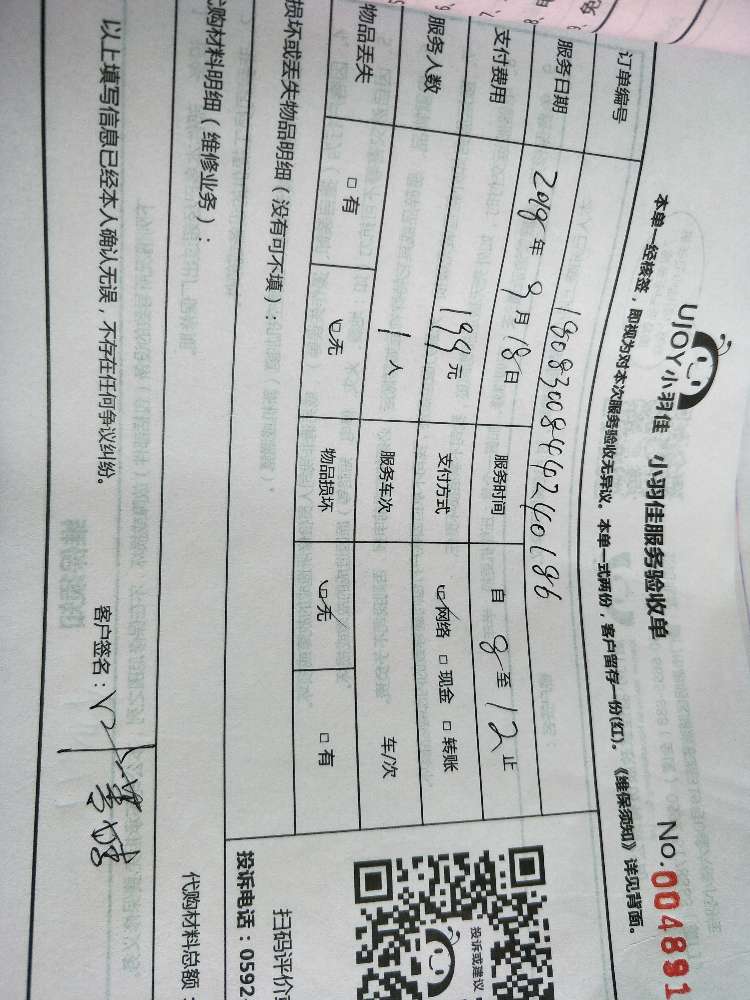 UJOY小羽佳 小羽佳服务验收单
No.004891
本单一经核签，即视为对本次服务验收无异议。本单一式两份，客户留存一份(红)。《维保须知》详见背面。
订单编号 18083008442240186
服务日期 2018年9月18日 服务时间 自8至12止
支付费用 199元 支付方式 网络 □现金 □转账
服务人数 1人 服务车次 车/次
物品丢失 □有 □无 物品损坏 □无 □有
损坏或丢失物品明细（没有可不填）：
代购材料明细（维修业务）：
投诉或建议
扫码评价
投诉电话：0592
代购材料总额：
以上填写信息已经本人确认无误，不存在任何争议纠纷。
客户签名：